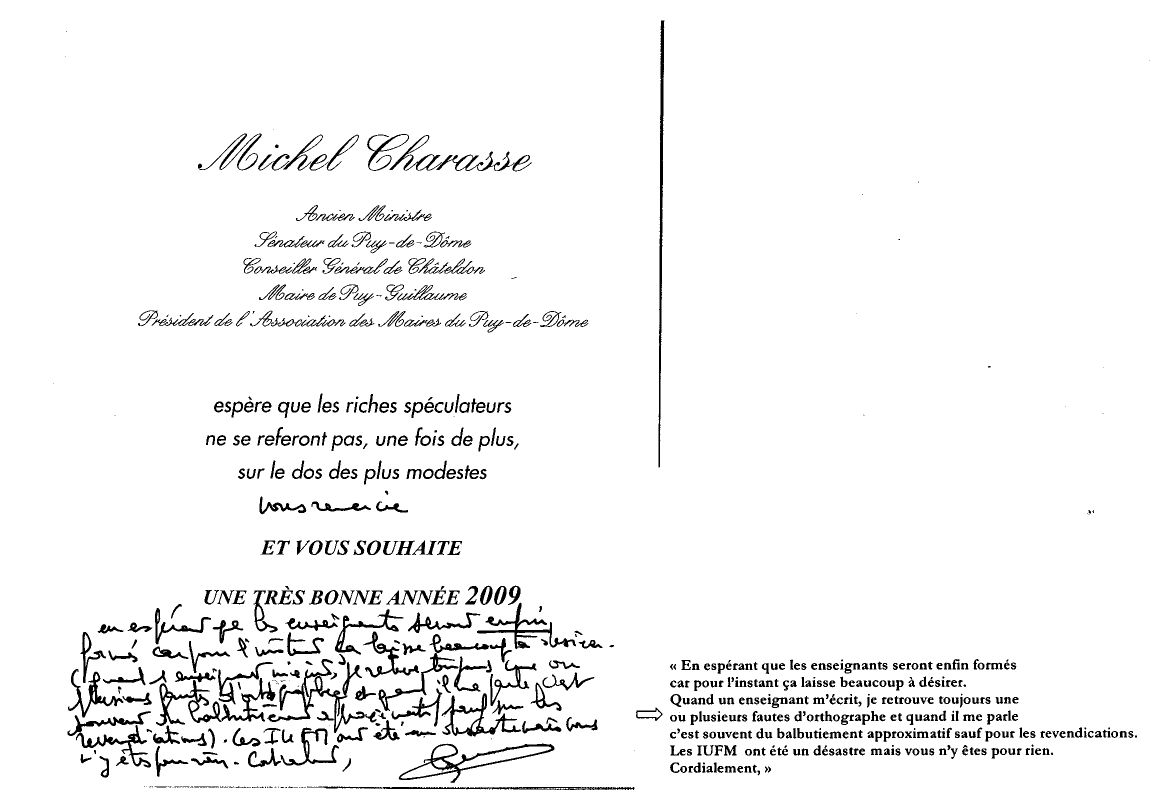 Michel Charasse
Ancien Ministre
Sénateur du Puy-de-Dôme
Conseiller Général de Châteldon
Maire de Puy-Guillaume
Président de l'Association des Maires du Puy-de-Dôme
espère que les riches spéculateurs
ne se referont pas, une fois de plus,
sur le dos des plus modestes
vous remercie
ET VOUS SOUHAITE
UNE TRÈS BONNE ANNÉE 2009
en espérant que les enseignants seront enfin
formés car pour l'instant ça laisse beaucoup à désirer.
(Quand 1 enseignant m'écrit, je retrouve toujours une ou
plusieurs fautes d'orthographe et quand il me parle c'est
souvent du balbutiement approximatif sauf pour les
revendications). Les IUFM ont été un désastre mais vous
n'y êtes pour rien. Cordialement,
« En espérant que les enseignants seront enfin formés
car pour l'instant ça laisse beaucoup à désirer.
Quand un enseignant m'écrit, je retrouve toujours une
ou plusieurs fautes d'orthographe et quand il me parle
c'est souvent du balbutiement approximatif sauf pour les revendications.
Les IUFM ont été un désastre mais vous n'y êtes pour rien.
Cordialement, »